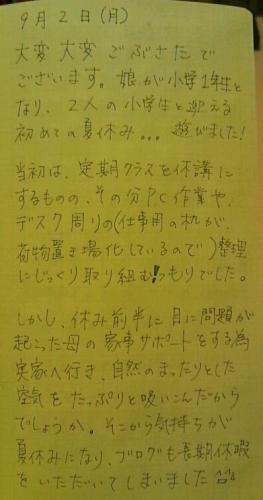 9月2日(月)
大変 大変 ごぶさたで
ございます。娘が小学1年生と
なり、2人の小学生と迎える
初めての夏休み... 遊びました!
当初は、定期クラスを休講に
するものの、その分PC作業や、
デスク周りの(仕事用の机が、
荷物置き場化しているので)整理
にじっくり取り組む!つもりでした。
しかし、休み前半に目に問題が
起こった母の家事サポートをする為
実家へ行き、自然のまったりとした
空気をたっぷりと吸いこんだから
でしょうか。そこから気持ちが
夏休みになり、ブログも長期休暇
をいただいてしまいました